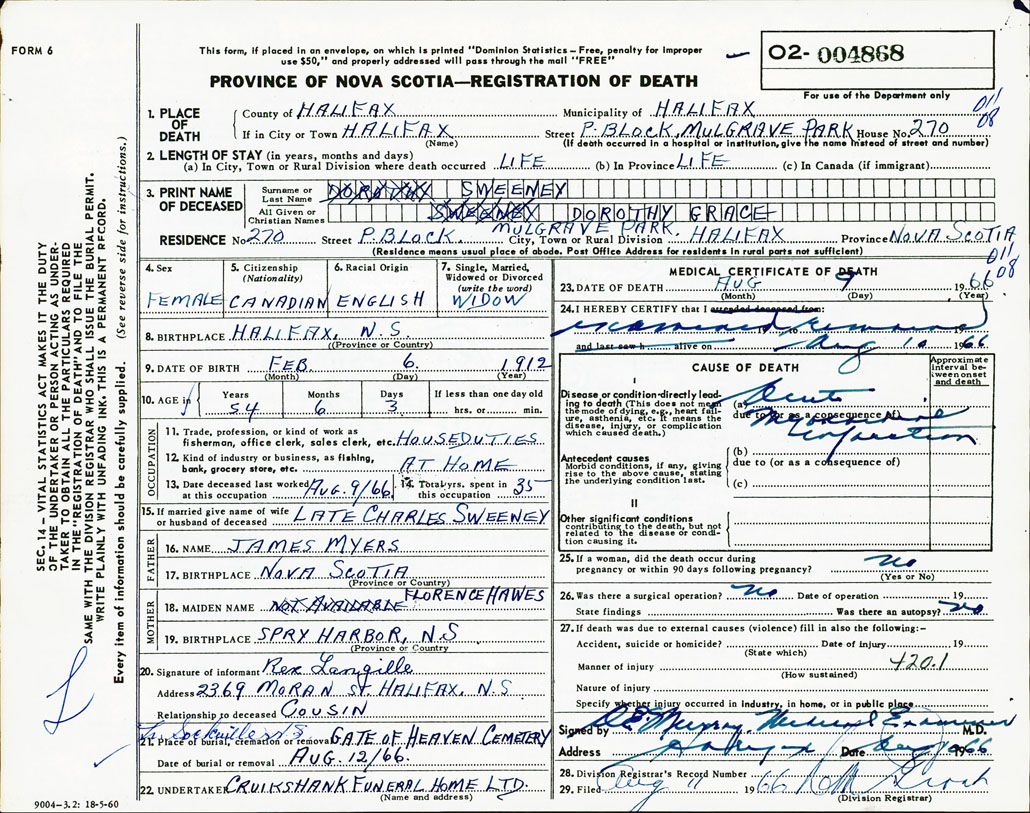 FORM 6
This form, if placed in an envelope, on which is printed "Dominion Statistics – Free, penalty for improper
use $50," and properly addressed will pass through the mail "FREE"
O2- 004868
PROVINCE OF NOVA SCOTIA—REGISTRATION OF DEATH
For use of the Department only
011
08
1. PLACE OF DEATH
County of HALIFAX Municipality of HALIFAX
If in City or Town HALIFAX Street P. BLOCK, MULGRAVE PARK House No. 270
(Name) (If death occurred in a hospital or institution, give the name instead of street and number)
2. LENGTH OF STAY (in years, months and days)
(a) In City, Town or Rural Division where death occurred LIFE (b) In Province LIFE (c) In Canada (if immigrant)
3. PRINT NAME OF DECEASED
Surname or Last Name DOROTHY SWEENEY
All Given or Christian Names SWEENEY DOROTHY GRACE
MULGRAVE PARK.
RESIDENCE No 270 Street P. BLOCK. City, Town or Rural Division HALIFAX Province NOVA SCOTIA
(Residence means usual place of abode. Post Office Address for residents in rural parts not sufficient)
011
08
4. Sex FEMALE
5. Citizenship (Nationality) CANADIAN
6. Racial Origin ENGLISH
7. Single, Married, Widowed or Divorced (write the word) WIDOW
8. BIRTHPLACE HALIFAX, N.S.
(Province or Country)
9. DATE OF BIRTH FEB. 6. 1912
(Month) (Day) (Year)
10. AGE in Years 54 Months 6 Days 3 If less than one day old hrs. or min.
OCCUPATION
11. Trade, profession, or kind of work as
fisherman, office clerk, sales clerk, etc. HOUSEDUTIES
12. Kind of industry or business, as fishing,
bank, grocery store, etc. AT HOME
13. Date deceased last worked at this occupation AUG. 9/66 14. Total yrs. spent in this occupation 35
15. If married give name of wife or husband of deceased LATE CHARLES SWEENEY
FATHER
16. NAME JAMES MYERS
17. BIRTHPLACE NOVA SCOTIA
(Province or Country)
MOTHER
18. MAIDEN NAME NOT AVAILABLE FLORENCE HAWES
19. BIRTHPLACE SPRY HARBOR, N.S
(Province or Country)
20. Signature of informant Rex Langille
Address 2369 MORAN ST. HALIFAX, N.S
Relationship to deceased COUSIN
Sackville N.S.
21. Place of burial, cremation or removal GATE OF HEAVEN CEMETERY
Date of burial or removal AUG. 12/66.
22. UNDERTAKER CRUIKSHANK FUNERAL HOME LTD.
(Name and address)
MEDICAL CERTIFICATE OF DEATH
23. DATE OF DEATH AUG 9 1966
(Month) (Day) (Year)
24. I HEREBY CERTIFY that I attended deceased from:
examined remains
19 to 19
and last saw h alive on Aug 10 1966
CAUSE OF DEATH
Approximate interval between onset and death
I
Disease or condition directly leading to death (This does not mean the mode of dying, e.g., heart failure, asthenia, etc. It means the disease, injury, or complication which caused death.)
(a) Acute
due to (or as a consequence of)
Myocardial
Infarction
Antecedent causes
Morbid conditions, if any, giving rise to the above cause, stating the underlying condition last.
(b)
due to (or as a consequence of)
(c)
II
Other significant conditions contributing to the death, but not related to the disease or condition causing it.
25. If a woman, did the death occur during
pregnancy or within 90 days following pregnancy? no
(Yes or No)
26. Was there a surgical operation? no Date of operation 19
State findings Was there an autopsy? no
27. If death was due to external causes (violence) fill in also the following:–
Accident, suicide or homicide? Date of injury 19
(State which)
Manner of injury 420.1
(How sustained)
Nature of injury
Specify whether injury occurred in industry, in home, or in public place
Signed by Murray, Medical Examiner M.D.
Address Halifax Date Aug 10 1966
28. Division Registrar's Record Number
29. Filed Aug 11 1966
(Division Registrar)
SEC. 14 – VITAL STATISTICS ACT MAKES IT THE DUTY
OF THE UNDERTAKER OR PERSON ACTING AS UNDER-
TAKER TO OBTAIN ALL THE PARTICULARS REQUIRED
IN THE "REGISTRATION OF DEATH" AND TO FILE THE
SAME WITH THE DIVISION REGISTRAR WHO SHALL ISSUE THE BURIAL PERMIT.
WRITE PLAINLY WITH UNFADING INK. THIS IS A PERMANENT RECORD.
Every item of information should be carefully supplied. (See reverse side for instructions.)
9004–3.2: 18-5-60